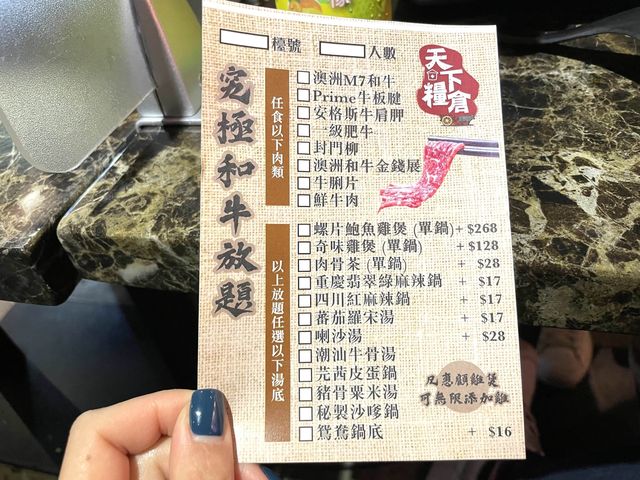 檯號 人數
天下糧倉
究極和牛放題
任食以下肉類
澳洲M7和牛
Prime牛板腱
安格斯牛肩胛
一級肥牛
封門柳
澳洲和牛金錢展
牛脷片
鮮牛肉
以上放題任選以下湯底
螺片鮑魚雞煲 (單鍋) + $268
奇味雞煲 (單鍋) + $128
肉骨茶 (單鍋) + $28
重慶翡翠綠麻辣鍋 + $17
四川紅麻辣鍋 + $17
蕃茄羅宋湯 + $17
喇沙湯 + $28
潮汕牛骨湯
芫茜皮蛋鍋
豬骨粟米湯
秘製沙嗲鍋
鴛鴦鍋底 + $16
凡惠顧雞煲
可無限添加雞